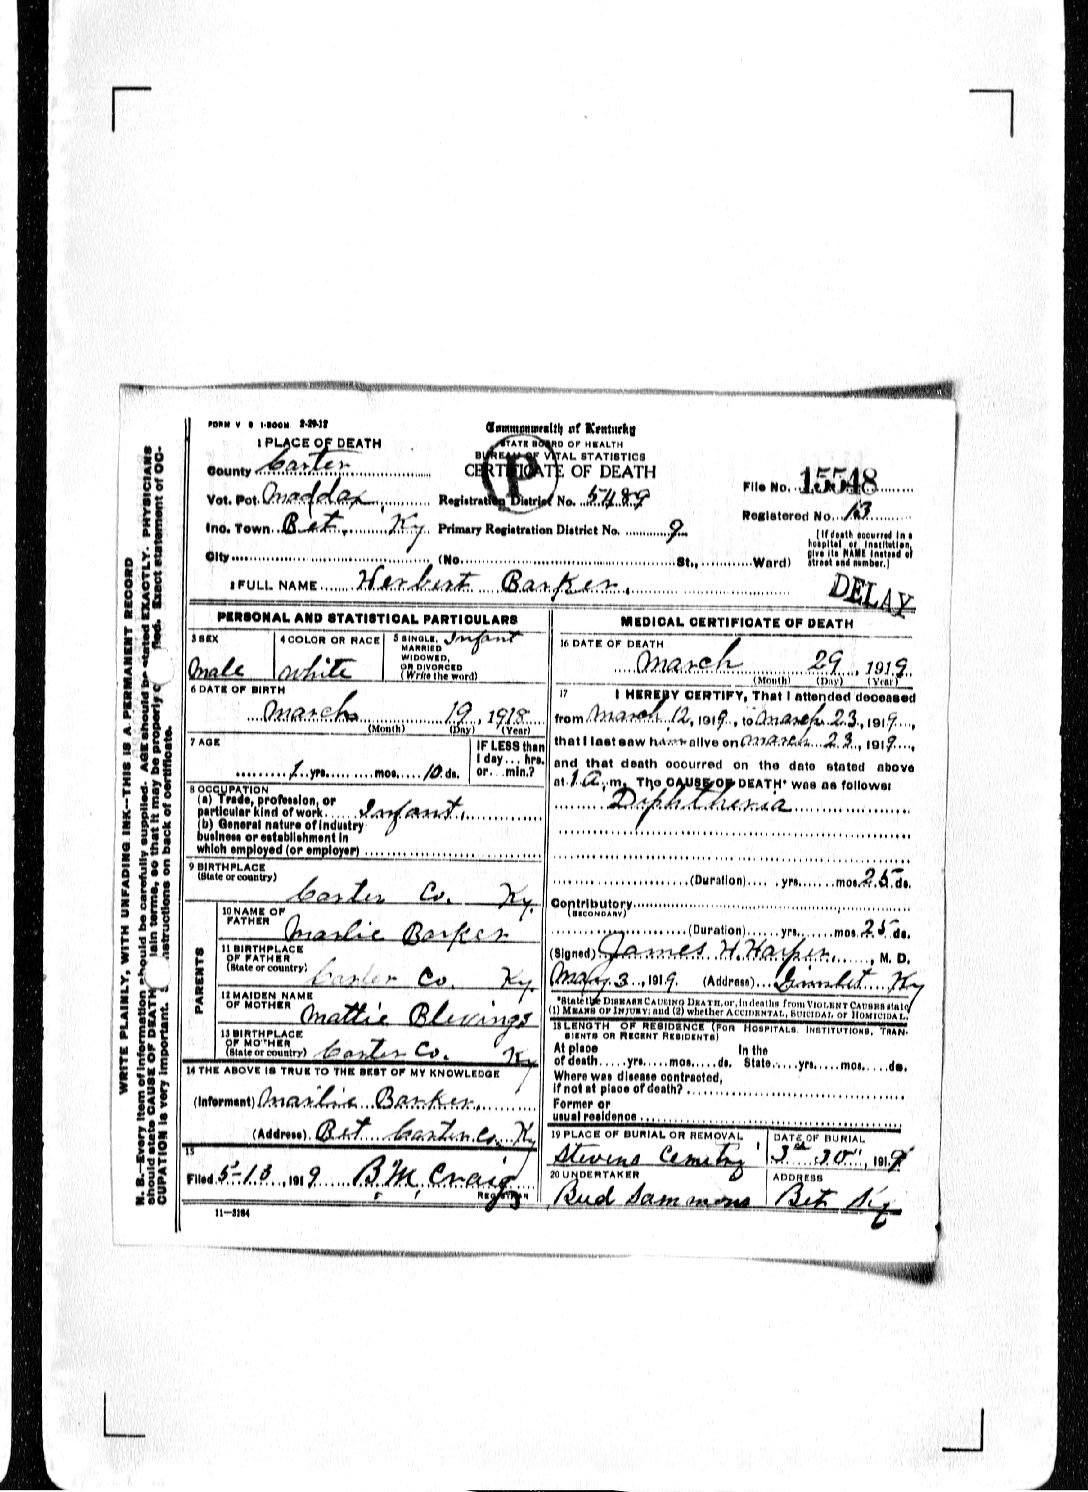 FORM V S 1-500M 2-29-12
Commonwealth of Kentucky
STATE BOARD OF HEALTH
BUREAU OF VITAL STATISTICS
CERTIFICATE OF DEATH
P
1 PLACE OF DEATH
County Carter
Vot. Pct. Maddax Registration District No. 5489
File No. 15548
Inc. Town Bet, Ky Primary Registration District No. 9
Registered No. 13
City (No. St., Ward)
[If death occurred in a hospital or institution, give its NAME instead of street and number.]
2 FULL NAME Herbert Barker
DELAY
PERSONAL AND STATISTICAL PARTICULARS
3 SEX
Male
4 COLOR OR RACE
White
5 SINGLE, MARRIED WIDOWED, OR DIVORCED (Write the word)
Infant
6 DATE OF BIRTH
March 19, 1918
(Month) (Day) (Year)
7 AGE
1 yrs. mos. 10 ds.
IF LESS than 1 day... hrs. or... min.?
8 OCCUPATION
(a) Trade, profession, or
particular kind of work Infant
(b) General nature of industry
business or establishment in
which employed (or employer)
9 BIRTHPLACE
(State or country)
Carter Co. Ky.
PARENTS
10 NAME OF FATHER
Marlie Barker
11 BIRTHPLACE OF FATHER
(State or country)
Carter Co. Ky.
12 MAIDEN NAME OF MOTHER
Mattie Blevings
13 BIRTHPLACE OF MOTHER
(State or country) Carter Co. Ky
14 THE ABOVE IS TRUE TO THE BEST OF MY KNOWLEDGE
(Informant) Marlie Barker
(Address) Bet Carter Co. Ky
15
Filed 5-13, 1919 B.M. Craig
REGISTRAR
11—3184
MEDICAL CERTIFICATE OF DEATH
16 DATE OF DEATH
March 29, 1919
(Month) (Day) (Year)
17 I HEREBY CERTIFY, That I attended deceased
from March 12, 1919, to March 23, 1919,
that I last saw him alive on March 23, 1919,
and that death occurred on the date stated above
at 1 A. m. The CAUSE OF DEATH* was as follows:
Diphtheria
(Duration) yrs. mos. 25 ds.
Contributory
(SECONDARY)
(Duration) yrs. mos. 25 ds.
(Signed) James H. Harper, M. D.
May 3, 1919. (Address) Gimlet Ky
*State the DISEASE CAUSING DEATH, or, in deaths from VIOLENT CAUSES state
(1) MEANS OF INJURY; and (2) whether ACCIDENTAL, SUICIDAL or HOMICIDAL.
18 LENGTH OF RESIDENCE (FOR HOSPITALS, INSTITUTIONS, TRANSIENTS OR RECENT RESIDENTS)
At place of death yrs. mos. ds. In the State yrs. mos. ds.
Where was disease contracted,
if not at place of death?
Former or
usual residence
19 PLACE OF BURIAL OR REMOVAL
Stevens Cemetry
DATE OF BURIAL
3rd 30", 1919
20 UNDERTAKER
Bud Sammons
ADDRESS
Bet Ky
WRITE PLAINLY, WITH UNFADING INK—THIS IS A PERMANENT RECORD
N. B.—Every item of information should be carefully supplied. AGE should be stated EXACTLY. PHYSICIANS
should state CAUSE OF DEATH lain terms, so that it may be properly fied. Exact statement of OC-
CUPATION is very important. structions on back of certificate.